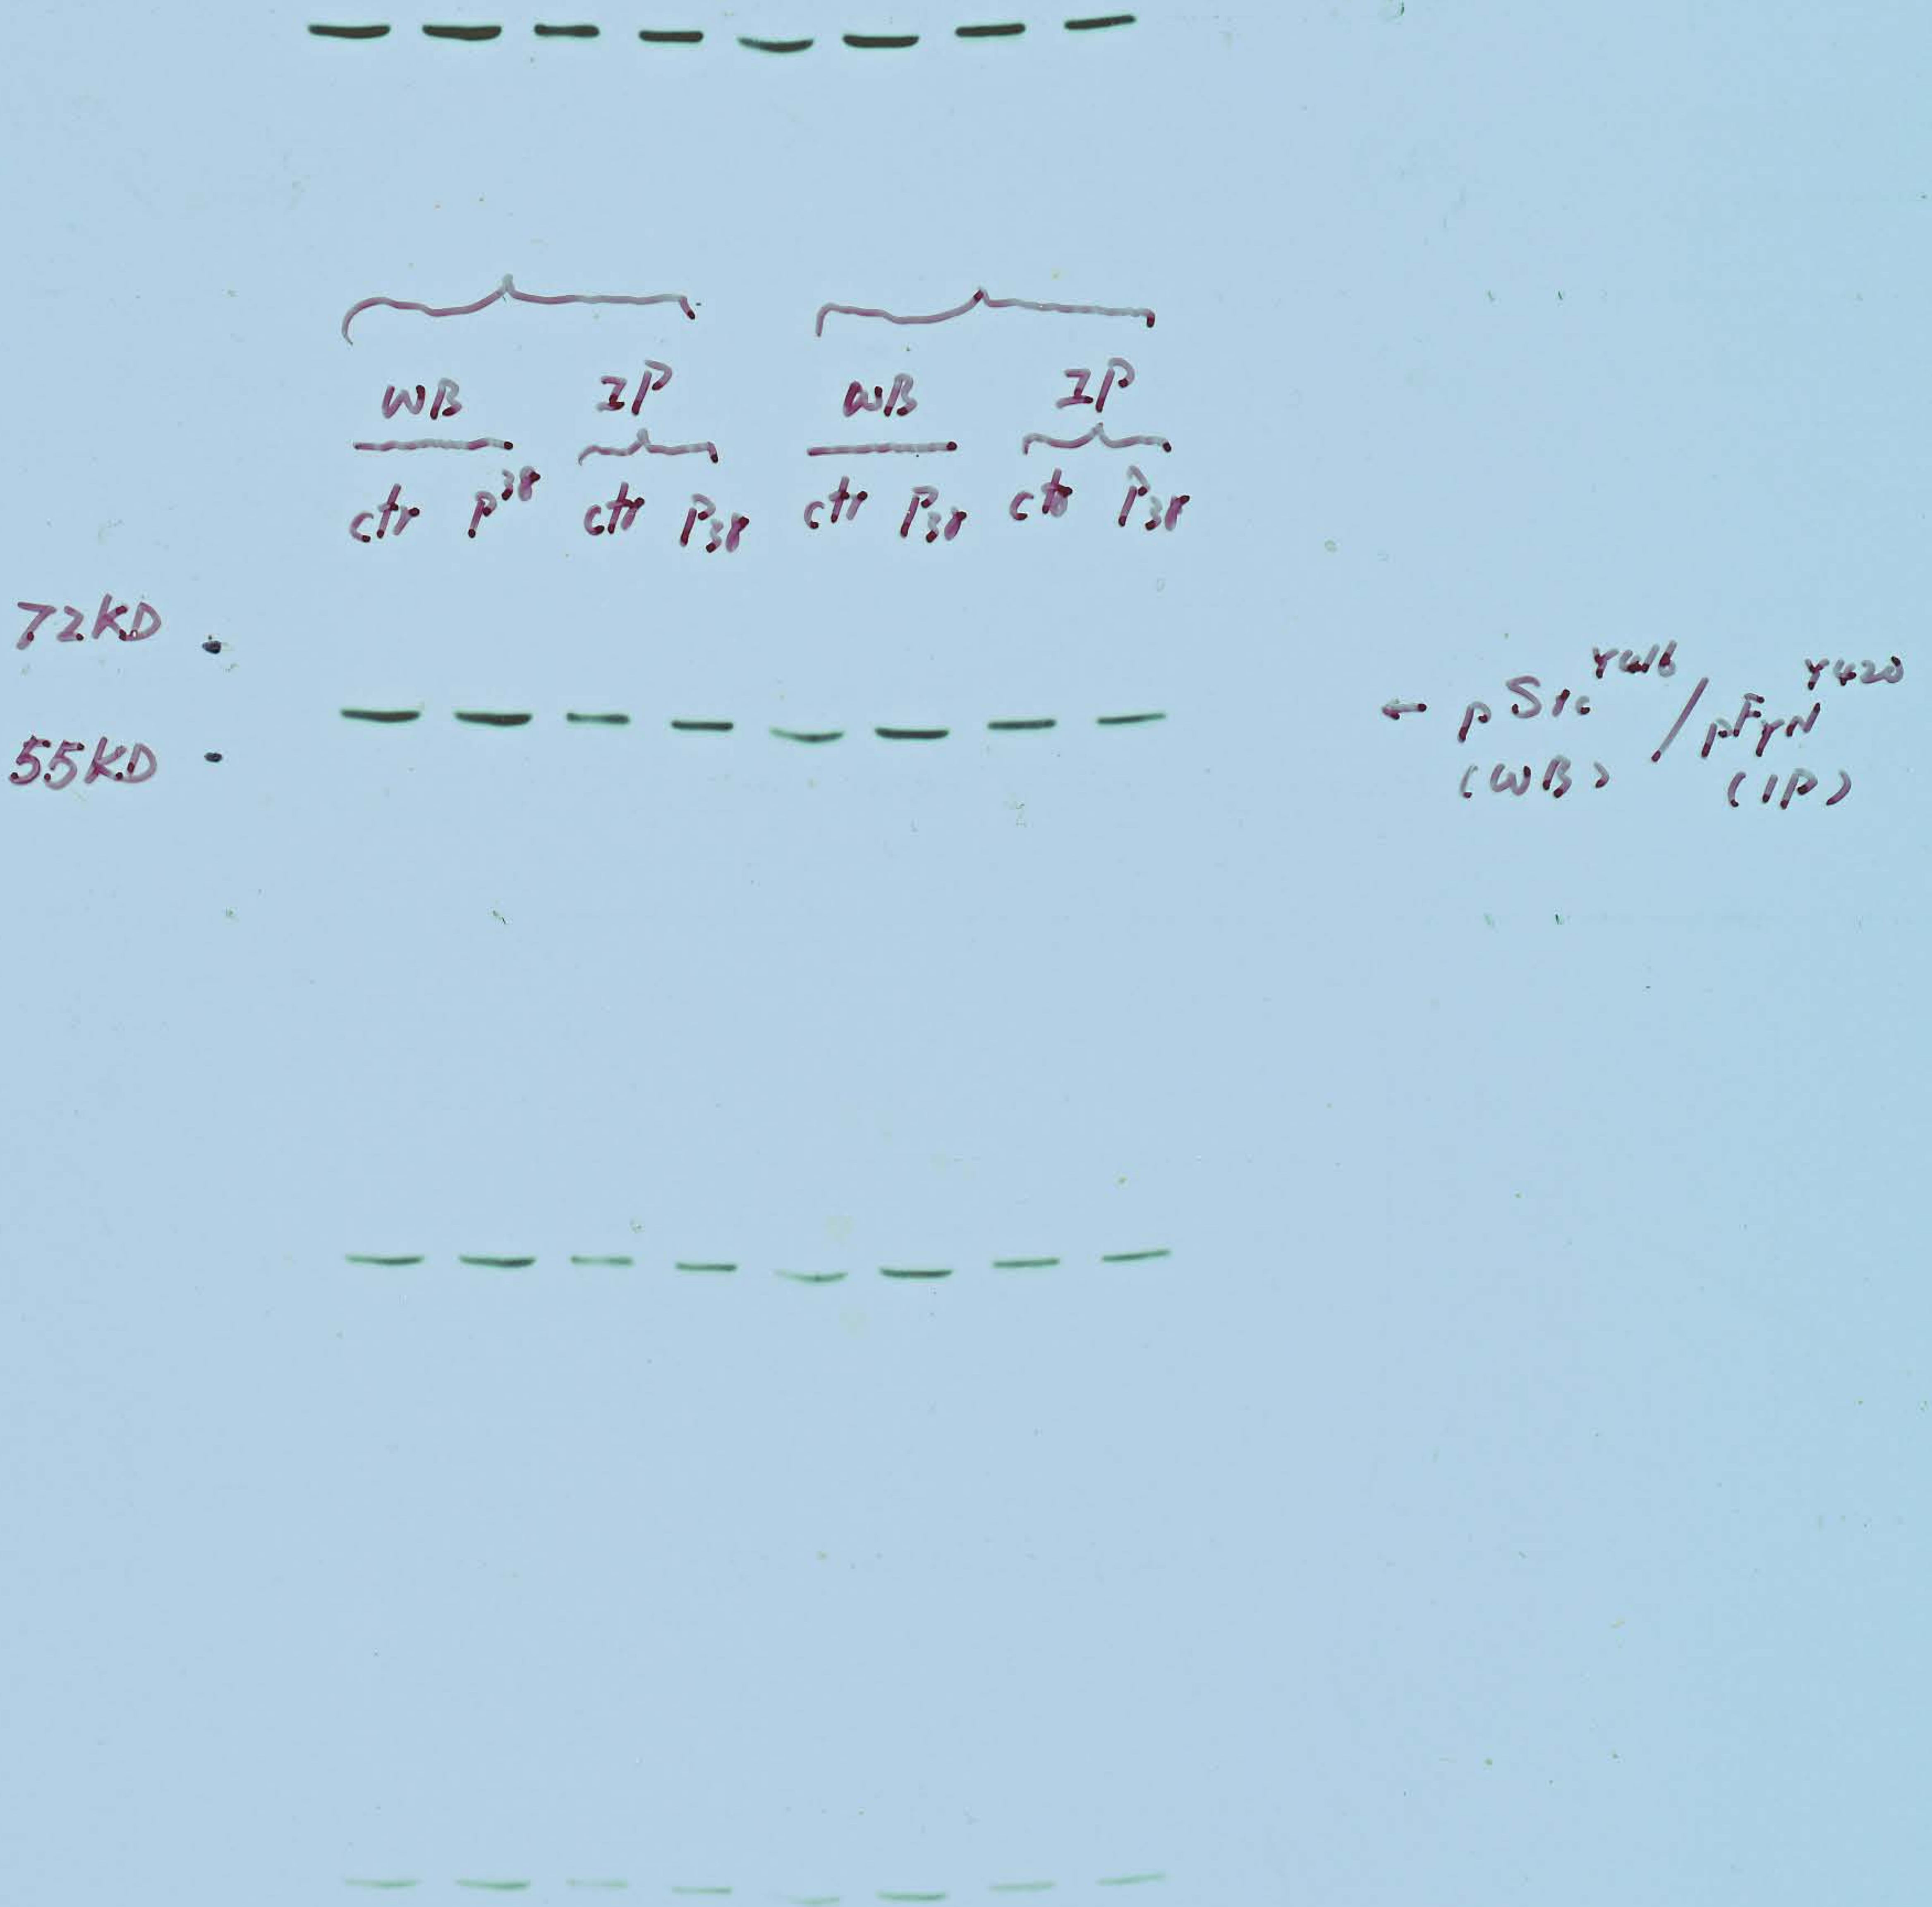 WB IP WB IP
ctr P38 ctr P38 ctr P38 ctr P38
72KD
← pSrc Y416 / pFyn Y420
55KD
(WB) (IP)